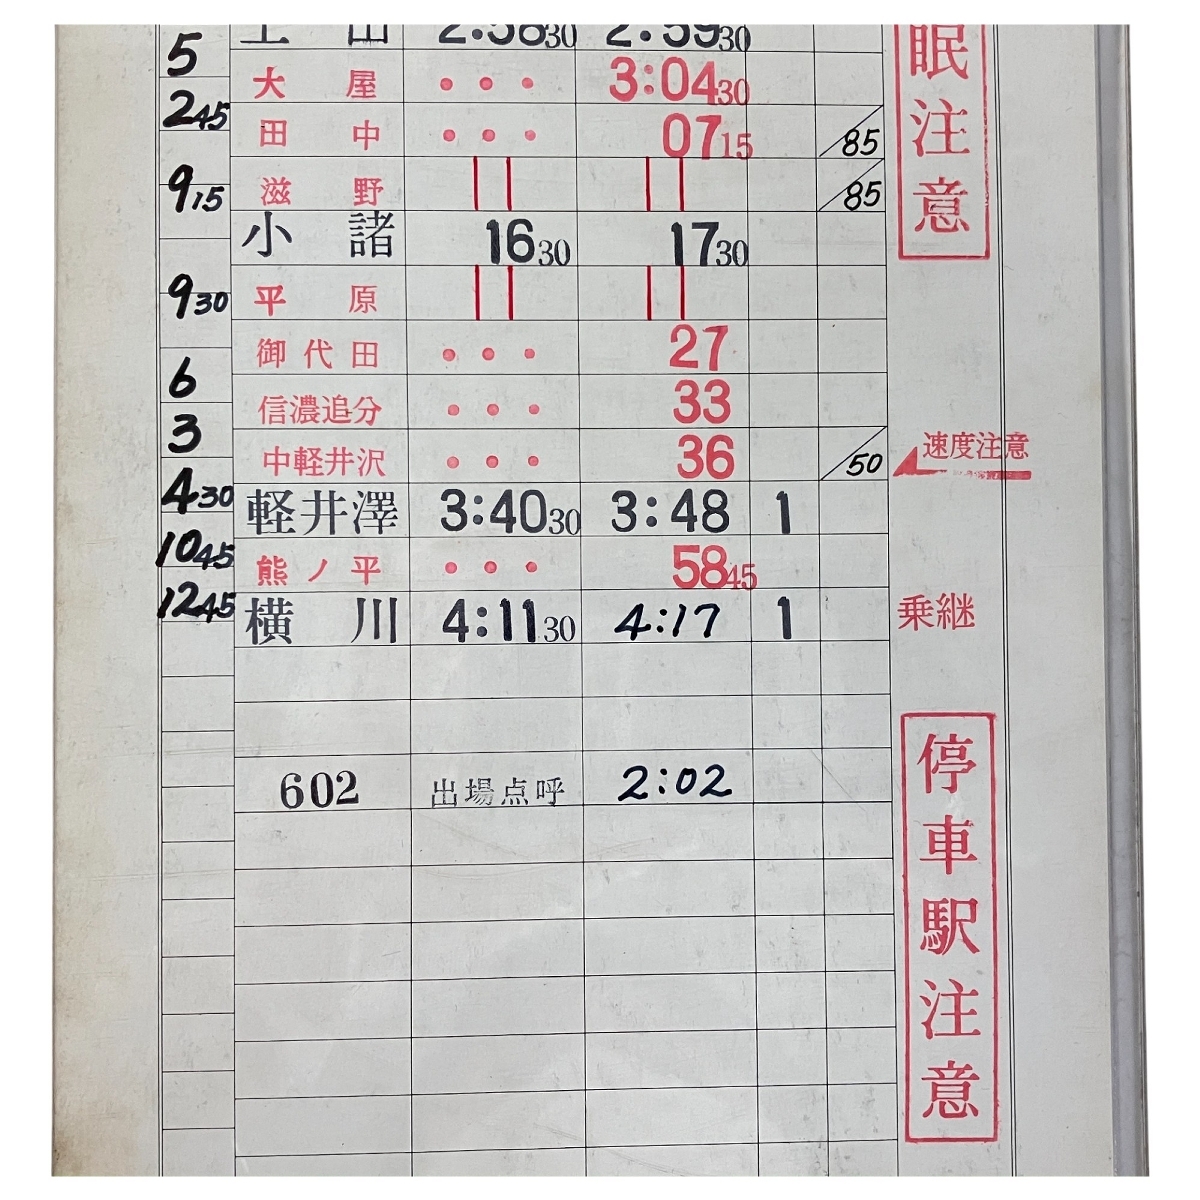 5 上田 2:58 30 2:59 30
大屋 • • • 3:04 30
2 45 田中 • • • 07 15 /85
9 15 滋野 /85
小諸 16 30 17 30
9 30 平原
御代田 • • • 27
6 信濃追分 • • • 33
3 中軽井沢 • • • 36 /50 速度注意
4 30 軽井澤 3:40 30 3:48 1
10 45 熊ノ平 • • • 58 45
12 45 横川 4:11 30 4:17 1 乗継
602 出場点呼 2:02
眠注意
停車駅注意